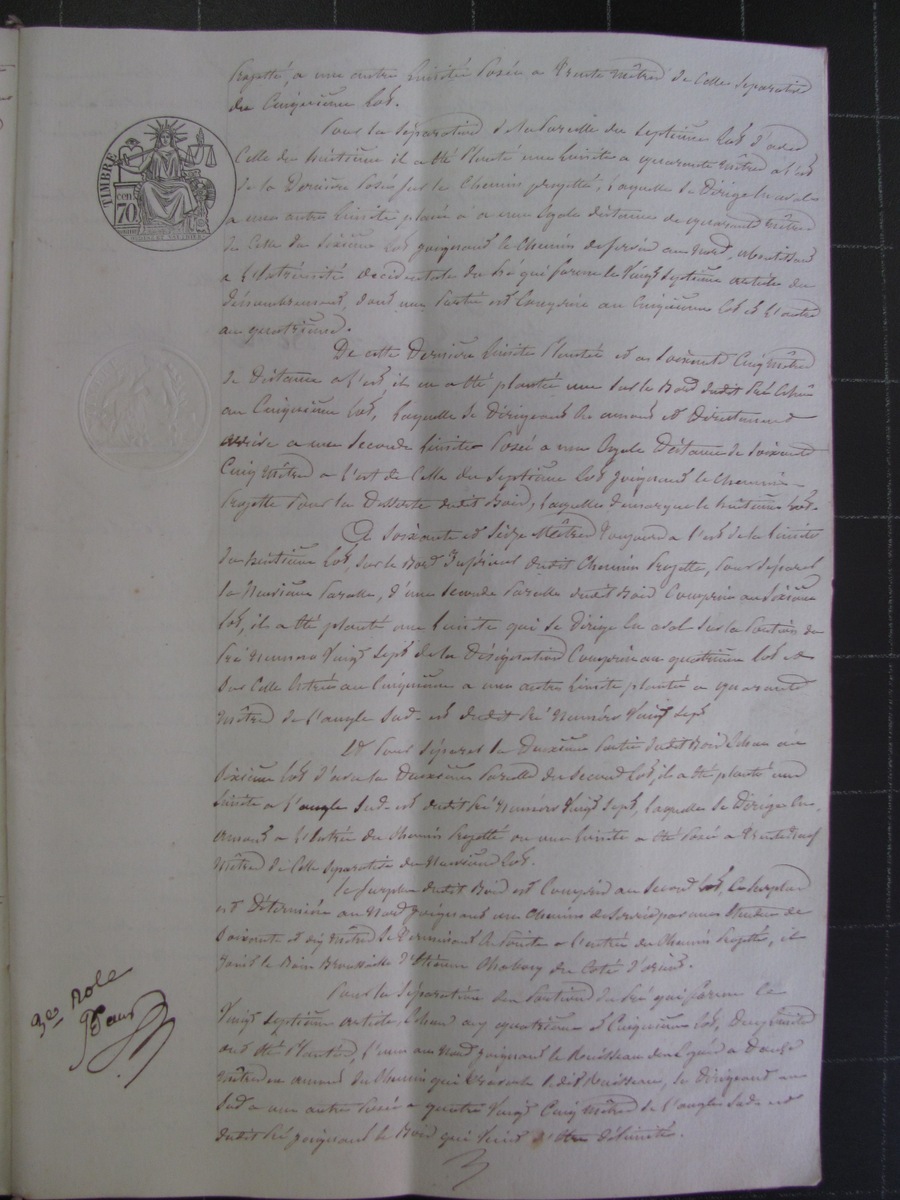 TIMBRE
cen.
70
projetté, a une autre limite posée a trente mètres de celle séparative
du Cinquième lot.
Pour la séparation de la parcelle du septième lot d'avec
celle du huitième il a été planté une limite a quarante mètres a l'est
de la dernière posée sur le chemin projetté, laquelle se dirige
a une autre limite placée a une égale distance de quarante mètres
de celle du sixième lot joignant le chemin de service au nord, aboutissant
a l'extrémité occidentale du pré qui forme le vingt septième article du
dénombrement, dont une partie est comprise au cinquième lot et l'autre
au quatrième.
De cette dernière limite plantée et a soixante cinq mètres
de distance a l'est, il en a été planté une sur le bord dudit pré échu
au cinquième lot, laquelle se dirigeant en amont et directement
arrive a une seconde limite posée a une égale distance de soixante
cinq mètres a l'est de celle du septième lot joignant le chemin
projetté pour la desserte dudit bois, laquelle demarque le huitième lot.
A soixante et seize mètres toujours a l'est de la limite
du huitième lot, sur le bord inférieur dudit chemin projetté, pour séparer
la neuvième parcelle, d'une seconde parcelle dudit bois comprise au sixième
lot, il a été planté une limite qui se dirige en aval sur la portion de
pré numéro vingt sept de la désignation comprise au quatrième lot et
par celle entrée au cinquième a une autre limite plantée a quarante
mètres de l'angle sud-est dudit pré numéro vingt sept
Et pour séparer la deuxième partie dudit bois échue au
sixième lot d'avec la deuxième parcelle du second lot, il a été planté une
limite a l'angle sud-est dudit pré numéro vingt sept, laquelle se dirige en
amont a l'entrée du chemin projetté ou une limite a été posée a trente neuf
mètres de celle séparative du neuvième lot.
Le surplus dudit bois est compris au second lot, ce surplus
est déterminé au nord joignant un chemin de service par une étendue de
soixante et dix mètres se terminant en pointe a l'entrée du chemin projetté, il
joint le bois broussaille d'Etienne du coté d'orient.
Pour la séparation des portions du pré qui forme le
vingt septième article, échues au quatrième et cinquième lot, deux limites
ont été plantées, l'une au nord joignant le Ruisseau a douze
mètres en amont du chemin qui traverse ledit Ruisseau, se dirigeant au
sud a une autre posée a quatre vingt cinq mètres de l'angle sud-est
dudit pré joignant le bois qui vient d'être délimité.
3e Role